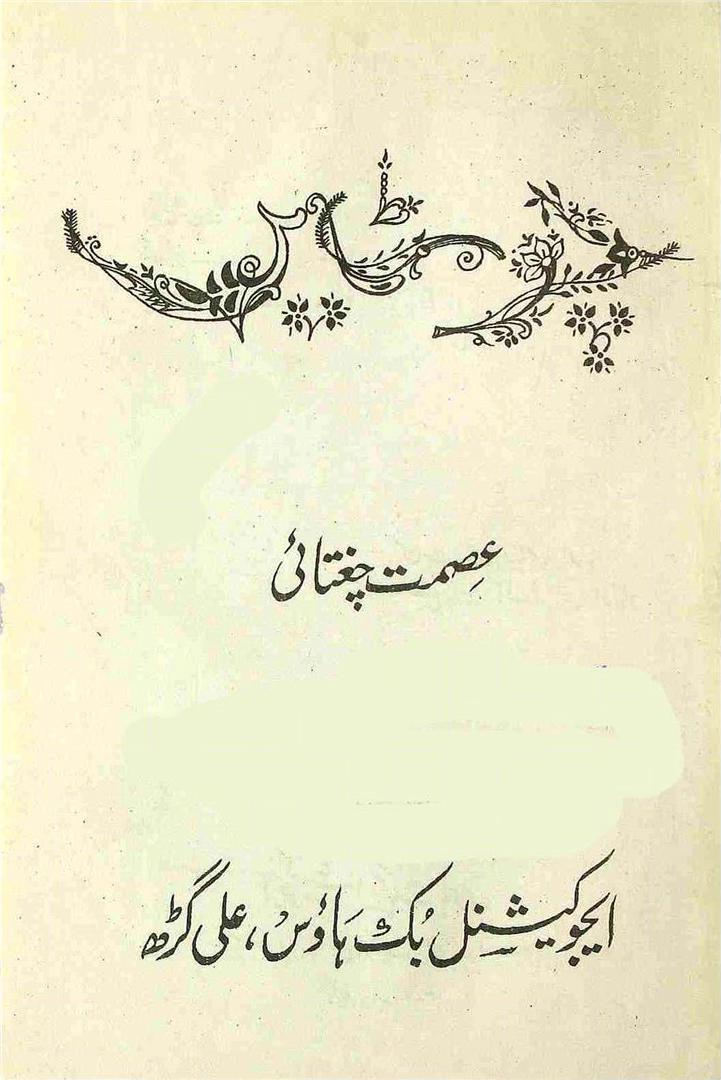 چوٹیں
عِصمت چغتائی
ایجوکیشنل بُک ہَاؤسْ، علی گڑھ